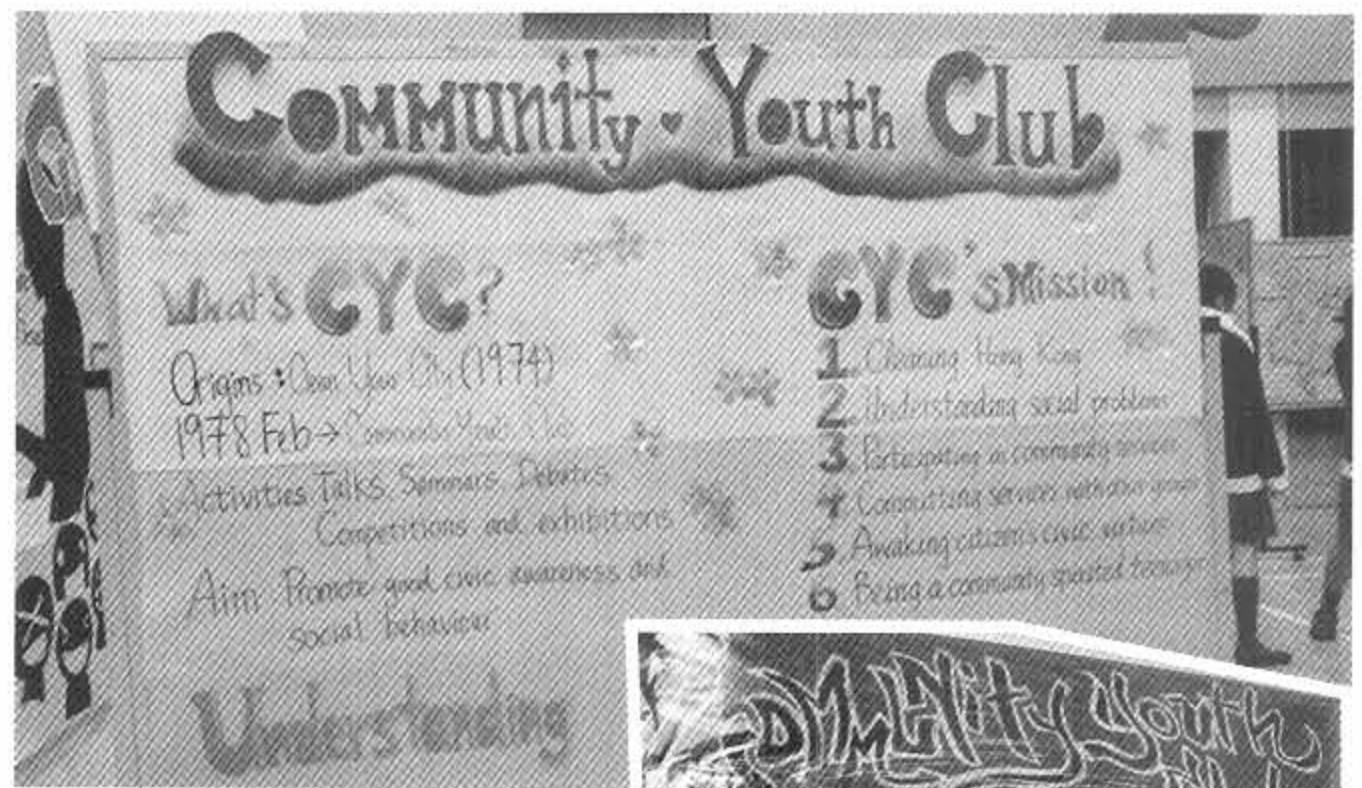 Community Youth Club
What's CYC?
Origins: Clean Your City (1974)
1978 Feb → Community Youth Club
Activities Talks, Seminars, Debates,
Competitions and exhibitions
Aim Promote good civic awareness and
social behaviour
Understanding
CYC's Mission!
1. Cleaning Hong Kong
2. Understanding social problems
3. Participating in community services
4. Committing services with
5. Awaking citizen's civic
6 Being a community spirited teenager
Community Youth